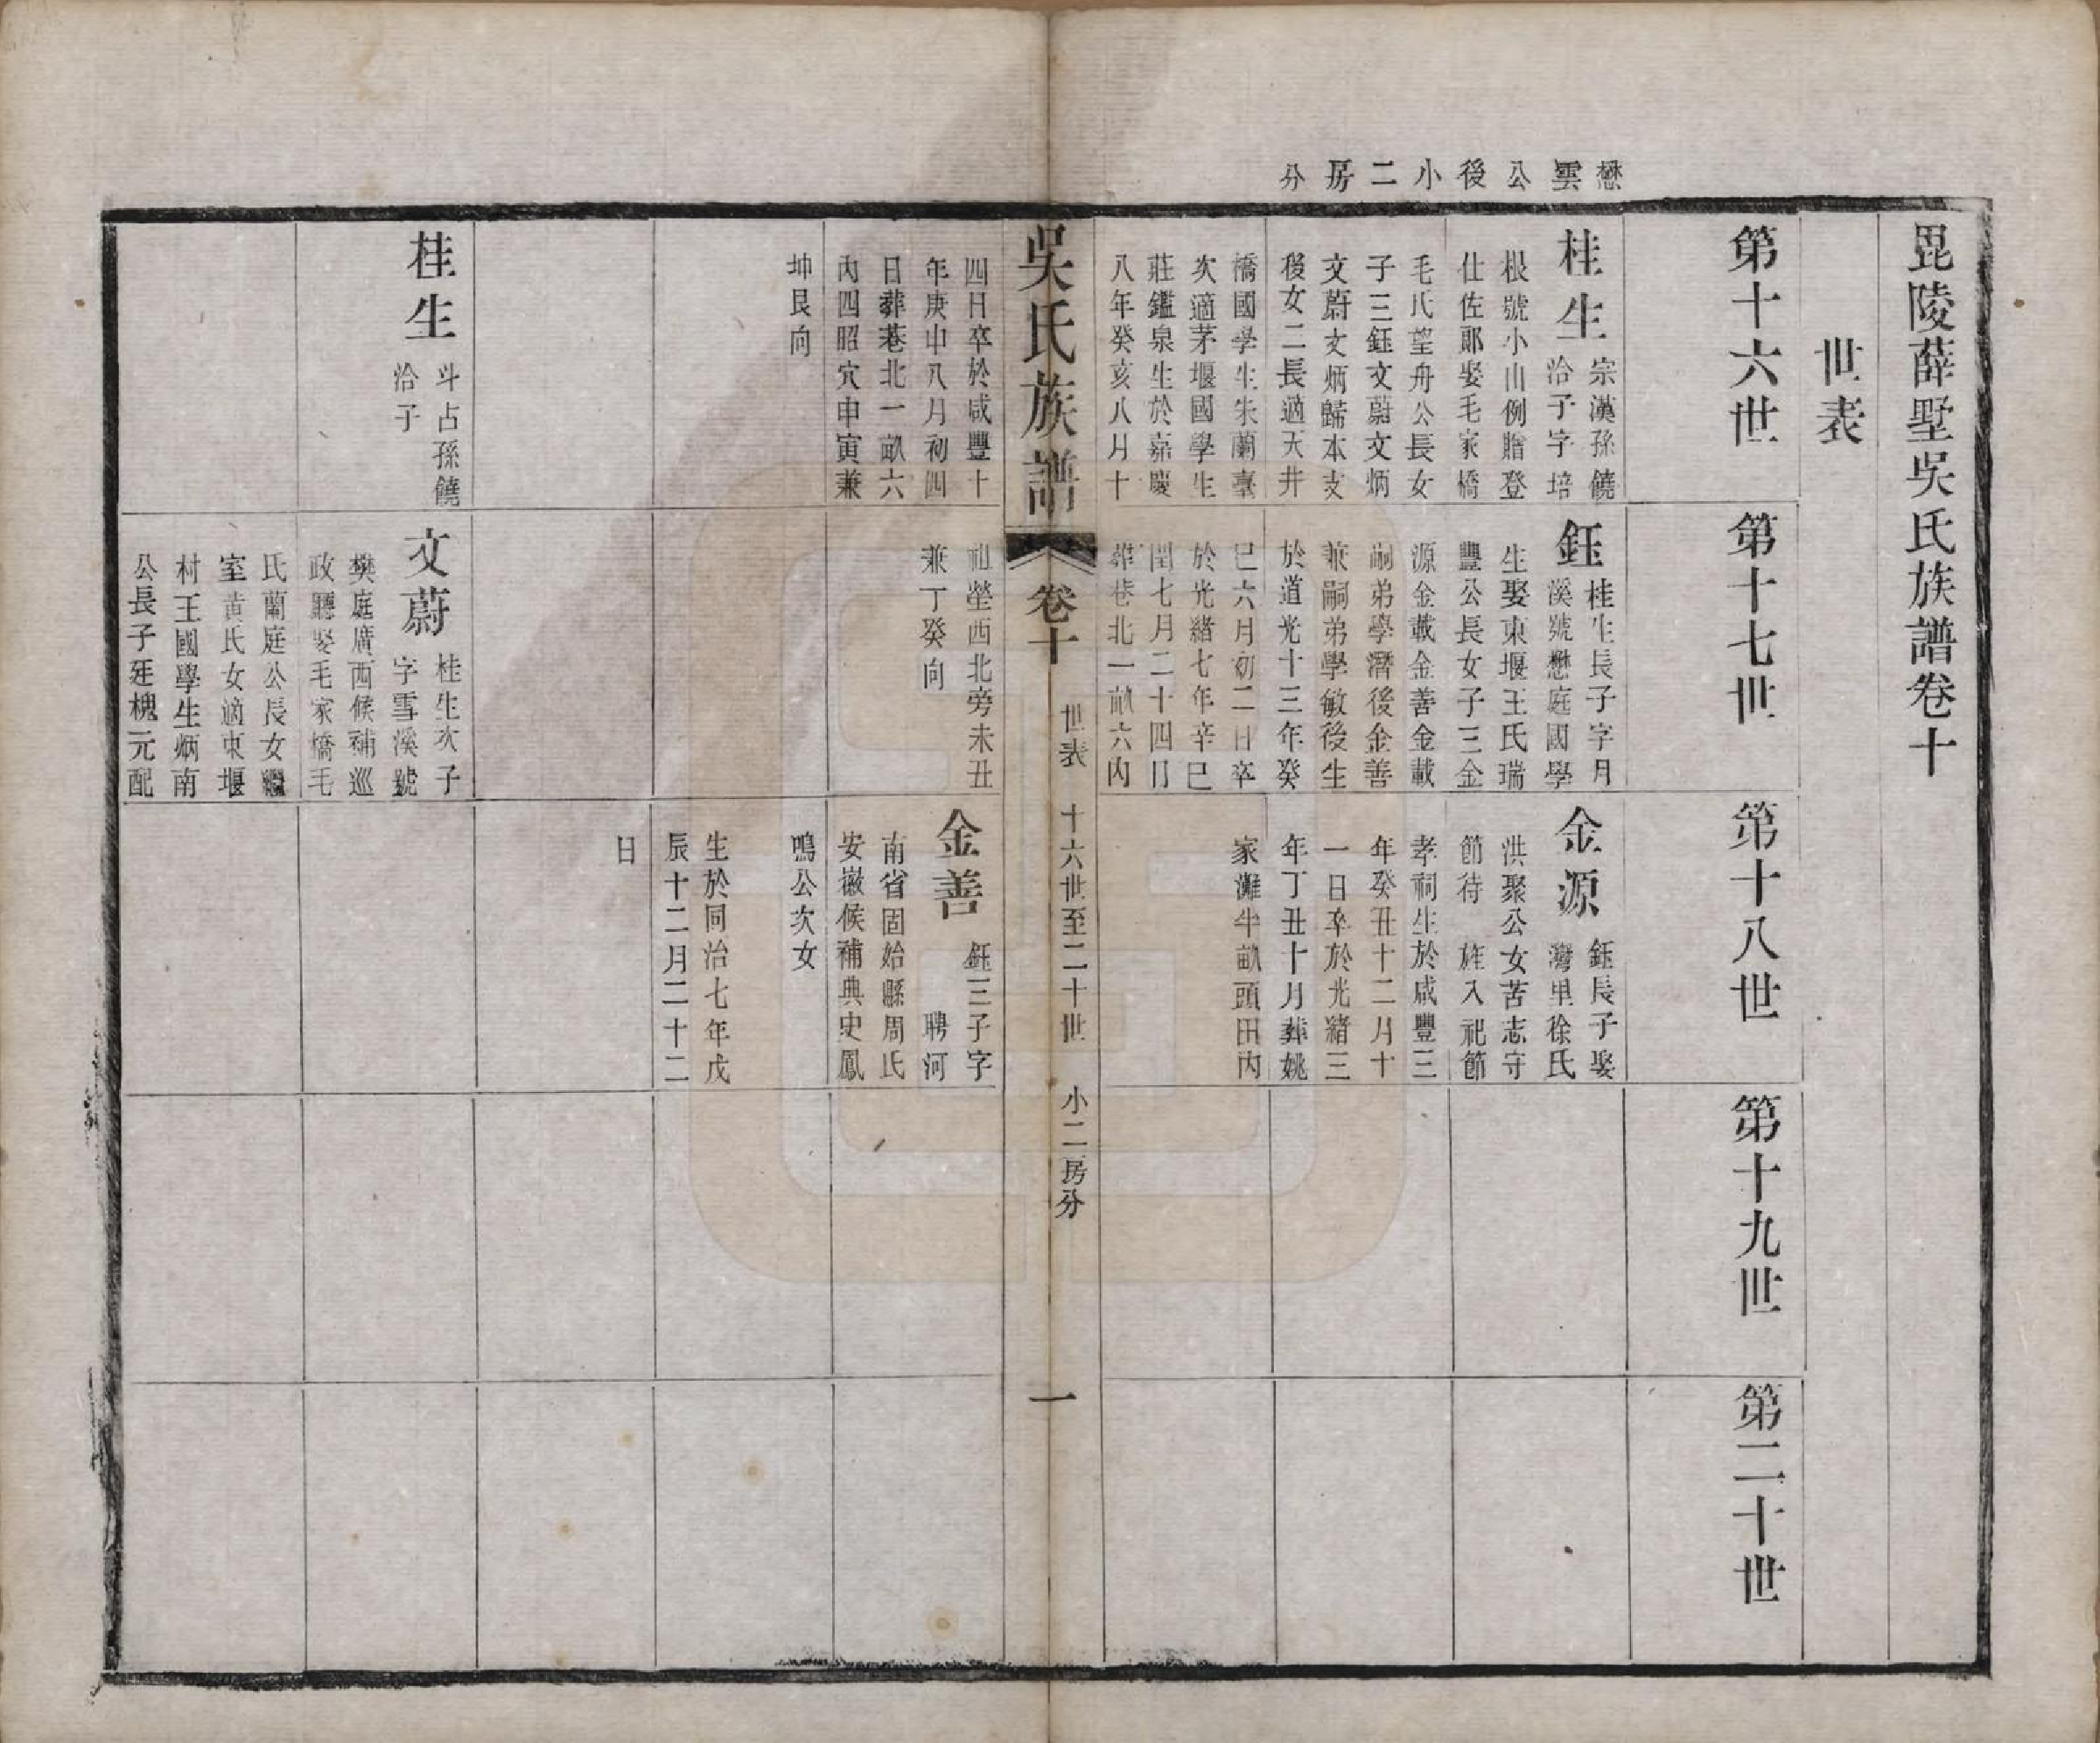 毘陵薛墅吳氏族譜卷十
世表
懋雲公後小二房分
第十六世
第十七世
第十八世
第十九世
第二十世
桂生
宗漢孫饒
洽子字培
根號小山例贈登
仕佐郎娶毛家橋
毛氏望舟公長女
子三鈺文蔚文炳
文蔚文炳歸本支
後女二長適天井
橋國學生朱蘭臺
次適茅堰國學生
莊鑑泉生於嘉慶
八年癸亥八月十
四日卒於咸豐十
年庚申八月初四
日葬巷北一畝六
內四昭穴申寅兼
坤艮向
鈺
桂生長子字月
溪號懋庭國學
生娶東堰王氏瑞
豐公長女子三金
源金載金善金載
嗣弟學濳後金善
兼嗣弟學敏後生
於道光十三年癸
巳六月初二日卒
於光緒七年辛巳
閏七月二十四日
葬巷北一畝六內
祖塋西北旁未丑
兼丁癸向
金源
鈺長子娶
灣里徐氏
洪聚公女苦志守
節待 旌入祀節
孝祠生於咸豐三
年癸丑十二月十
一日卒於光緒三
年丁丑十月葬姚
家灘半畝頭田內
金善
鈺三子字
聘河
南省固始縣周氏
安徽候補典史鳳
鳴公次女
生於同治七年戊
辰十二月二十二
日
吳氏族譜 卷十 世表 十六世至二十世 小二房分 一
桂生
斗占孫饒
洽子
文蔚
桂生次子
字雪溪號
樊庭廣西候補巡
政廳娶毛家橋毛
氏蘭庭公長女繼
室黃氏女適東堰
村王國學生炳南
公長子廷槐元配